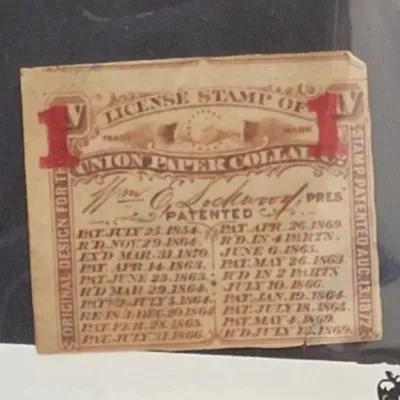 1 V LICENSE STAMP OF 1 V
TRADE MARK
UNION PAPER COLLAR
Wm E. Lockwood, PRES
PATENTED
PAT. JULY 25. 1854.
R'D. NOV. 29. 1864.
EX'D MAR. 31. 1870.
PAT. APR. 14. 1863.
PAT. JUNE 23. 1863.
R'D MAR. 29. 1864.
PAT JULY 5. 1864.
RE-IS'D DEC. 20 1864
PAT. FEB. 28. 1865.
PAT. JULY 31. 1866.
PAT APR. 26. 1869.
R'D. IN 4 PARTS.
JUNE 6. 1865.
PAT. MAY 26. 1863.
R'D IN 2 PARTS
JULY 10. 1866.
PAT. JAN. 19. 1864.
PAT. JULY 18. 1865.
PAT. MAY 4. 1869.
R'D. JULY 13. 1869.
ORIGINAL DESIGN FOR THIS
STAMP PATENTED AUG. 13. 1872